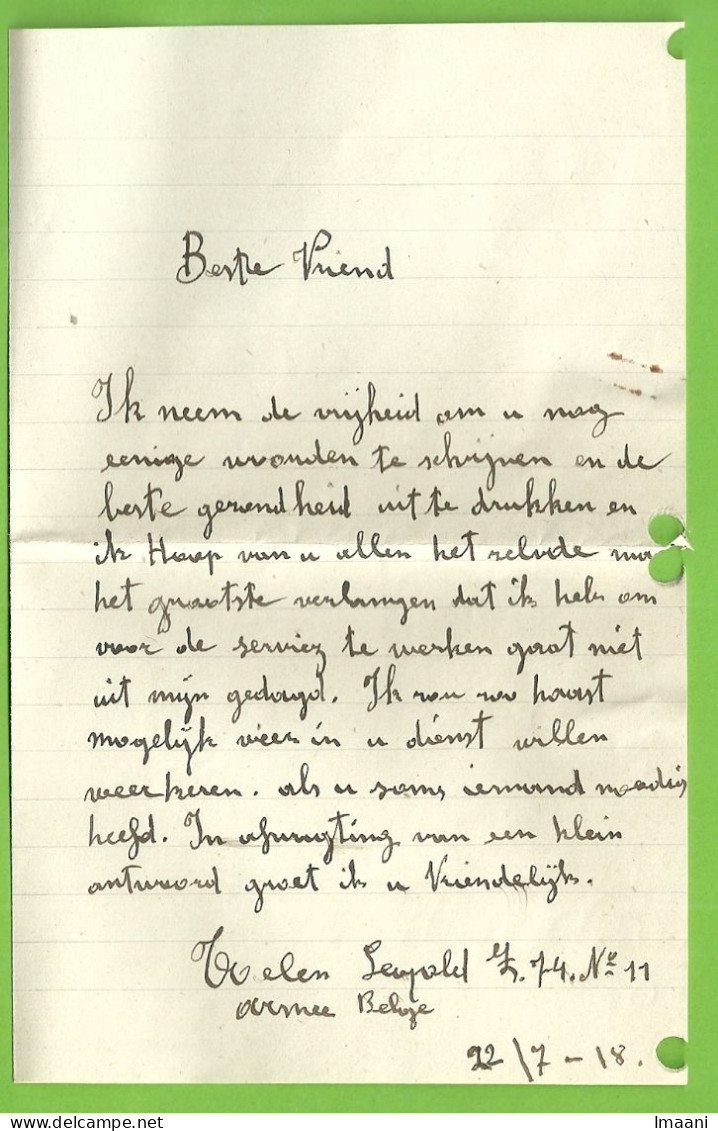 Beste Vriend
Ik neem de vrijheid om u nog
eenige woorden te schrijven en de
beste gezondheid uit te drukken en
ik Hoop van u allen het zelvde
het grootste verlangen dat ik heb om
voor de serviez te werken gaat niet
uit mijn gedagd. Ik zou zoo haast
mogelijk weer in u dienst willen
weerkeren. als u soms iemand noodig
heefd. In afwagting van een klein
antwoord groet ik u Vriendelijk.
Leopold 74. No 11
Armee Belge
22/7-18.
Imaani